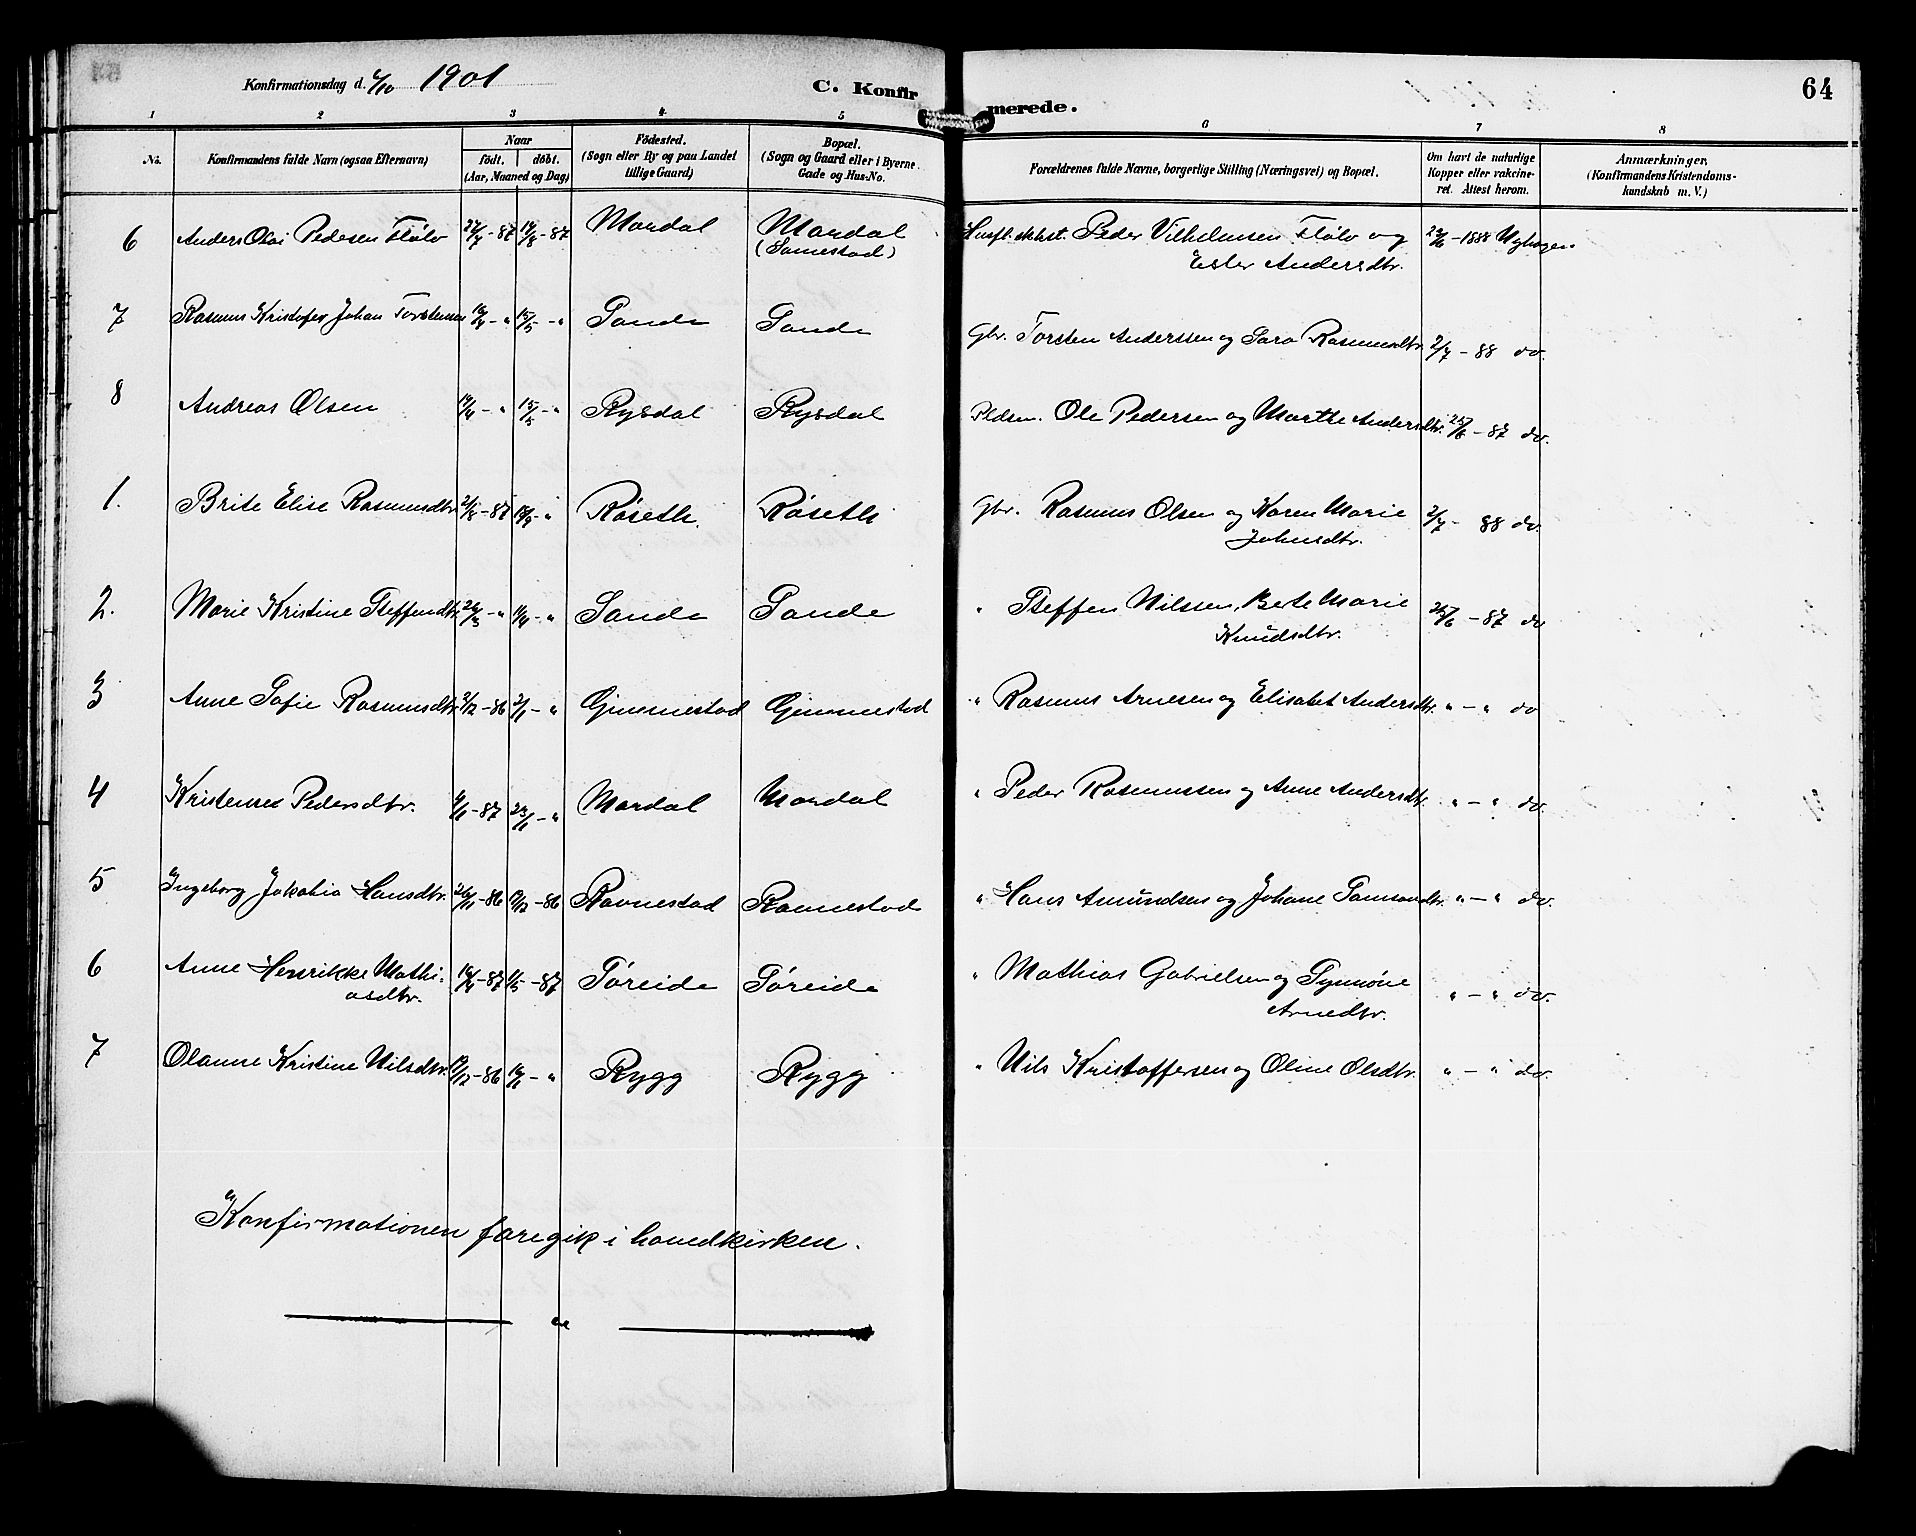 64
Konfirmationsdag d. 6/10 1901
C. Konfirmerede.
1 2 3 4 5 6 7 8
No.
Konfirmandens fulde Navn (ogsaa Efternavn)
Naar
födt. döbt.
(Aar, Maaned og Dag)
Födested.
(Sogn eller By og paa Landet
tillige Gaard)
Bopæl.
(Sogn og Gaard eller i Byerne
Gade og Hus-No.
Forældrenes fulde Navne, borgerlige Stilling (Næringsvei) og Bopæl.
Om havt de naturlige
Kopper eller vakcine-
ret. Attest herom.
Anmærkninger.
(Konfirmandens Kristendoms-
kundskab m. V.)
6 Anders Olai Pedersen Flølo 27/7 - 87 14/8 - 87 Mardal Mardal Peder Vilhelmsen Flølo og 29/6 - 1888 Myhagen
(Samestad) Ester Andersdtr.
7 Rasmus Kristofer Johan Torstensen 10/4 - " 15/5 - " Sande Sande Gbr. Torsten Anderssen og Sara Rasmusdtr. 2/7 - 88 do.
8 Andreas Olsen 19/4 - " 15/5 - " Rysdal Rysdal Pldsm. Ole Pedersen og Marthe Andersdtr. 25/6 - 87 do.
1. Brite Elise Rasmusdtr. 21/8 - 87 18/9 - " Røseth. Røseth Gbr. Rasmus Olsen og Karen Marie 2/7 - 88 do.
Johnsdtr.
2. Marie Kristine Steffendtr. 26/3 - " 11/4 - " Sande Sande " Steffen Nilssen, Berte Marie 25/6 - 87 do
Knudsdtr.
3 Anne Sofie Rasmusdtr. 2/12 - 86 2/1 - " Gimmestad Gimmestad " Rasmus Arnesen og Elisabet Andersdtr. " - " do
4 Kristense Pedersdtr. 6/1 - 87 23/1 - " Mardal Mardal " Peder Rasmussen og Anne Andersdtr. " - " do.
5 Ingeborg Jakobia Hansdtr. 26/11 - 86 12/12 - 86 Ravnestad Ravnestad " Hans Amundsen og Johane Samsondtr. " - " do.
6 Anne Henrikke Mathi- 16/4 - 87 1/5 - 87 Søreide Søreide " Mathias Gabrielsen og Synnøve " - " do.
asdtr. Arnedtr.
7 Olanne Kristine Nilsdtr. 19/12 - 86 16/1 - " Rygg Rygg " Nils Kristoffersen og Oline Olsdtr. " - " do.
Konfirmationen foregik i hovedkirken.